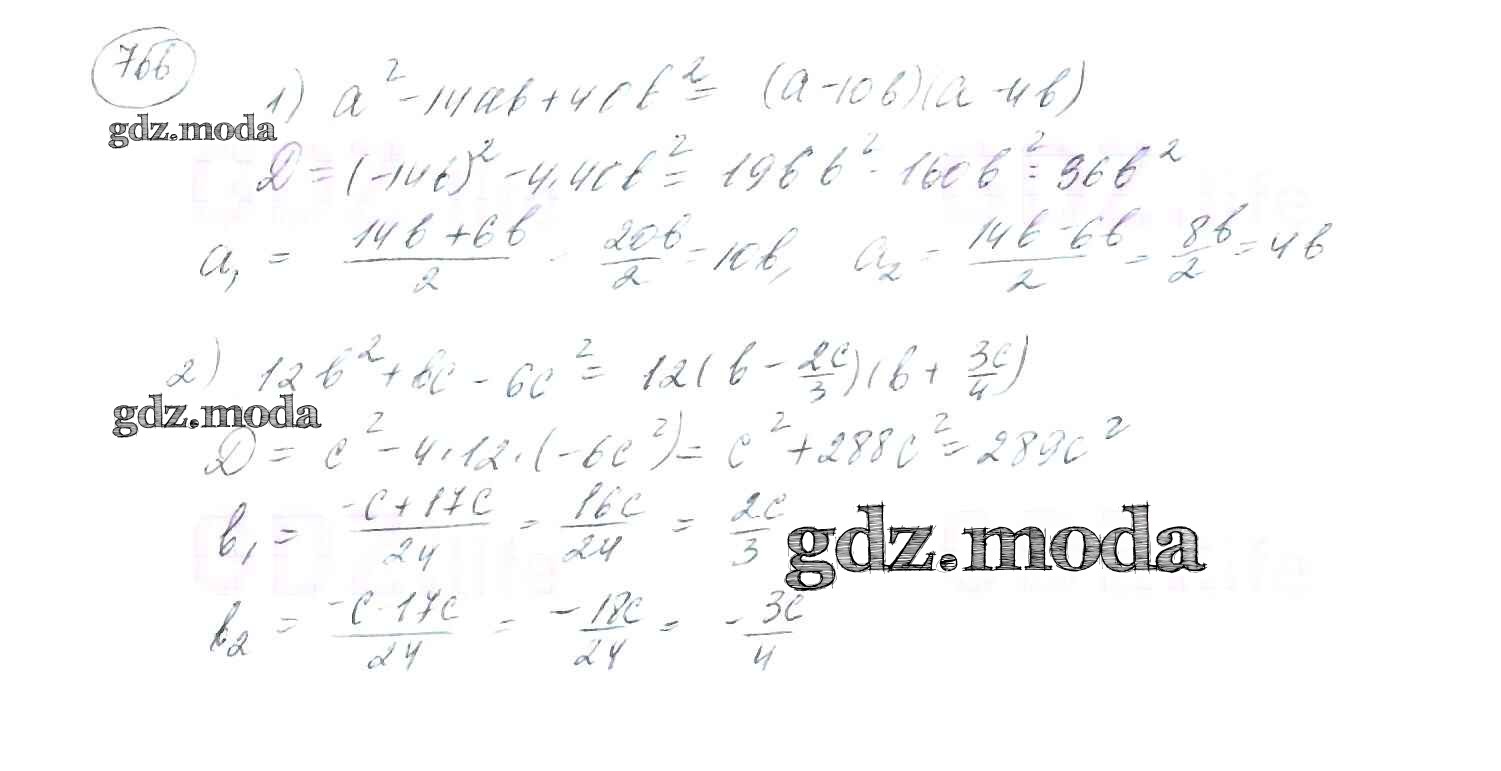 766
1) a² - 14ab + 40b² = (a - 10b)(a - 4b)
gdz.moda
D = (-14b)² - 4·40b² = 196b² - 160b² = 36b²
a₁ = (14b + 6b)/2 = 20b/2 = 10b, a₂ = (14b - 6b)/2 = 8b/2 = 4b
2) 12b² + bc - 6c² = 12(b - 2c/3)(b + 3c/4)
gdz.moda
D = c² - 4·12·(-6c²) = c² + 288c² = 289c²
b₁ = (-c + 17c)/24 = 16c/24 = 2c/3
gdz.moda
b₂ = (-c - 17c)/24 = -18c/24 = -3c/4